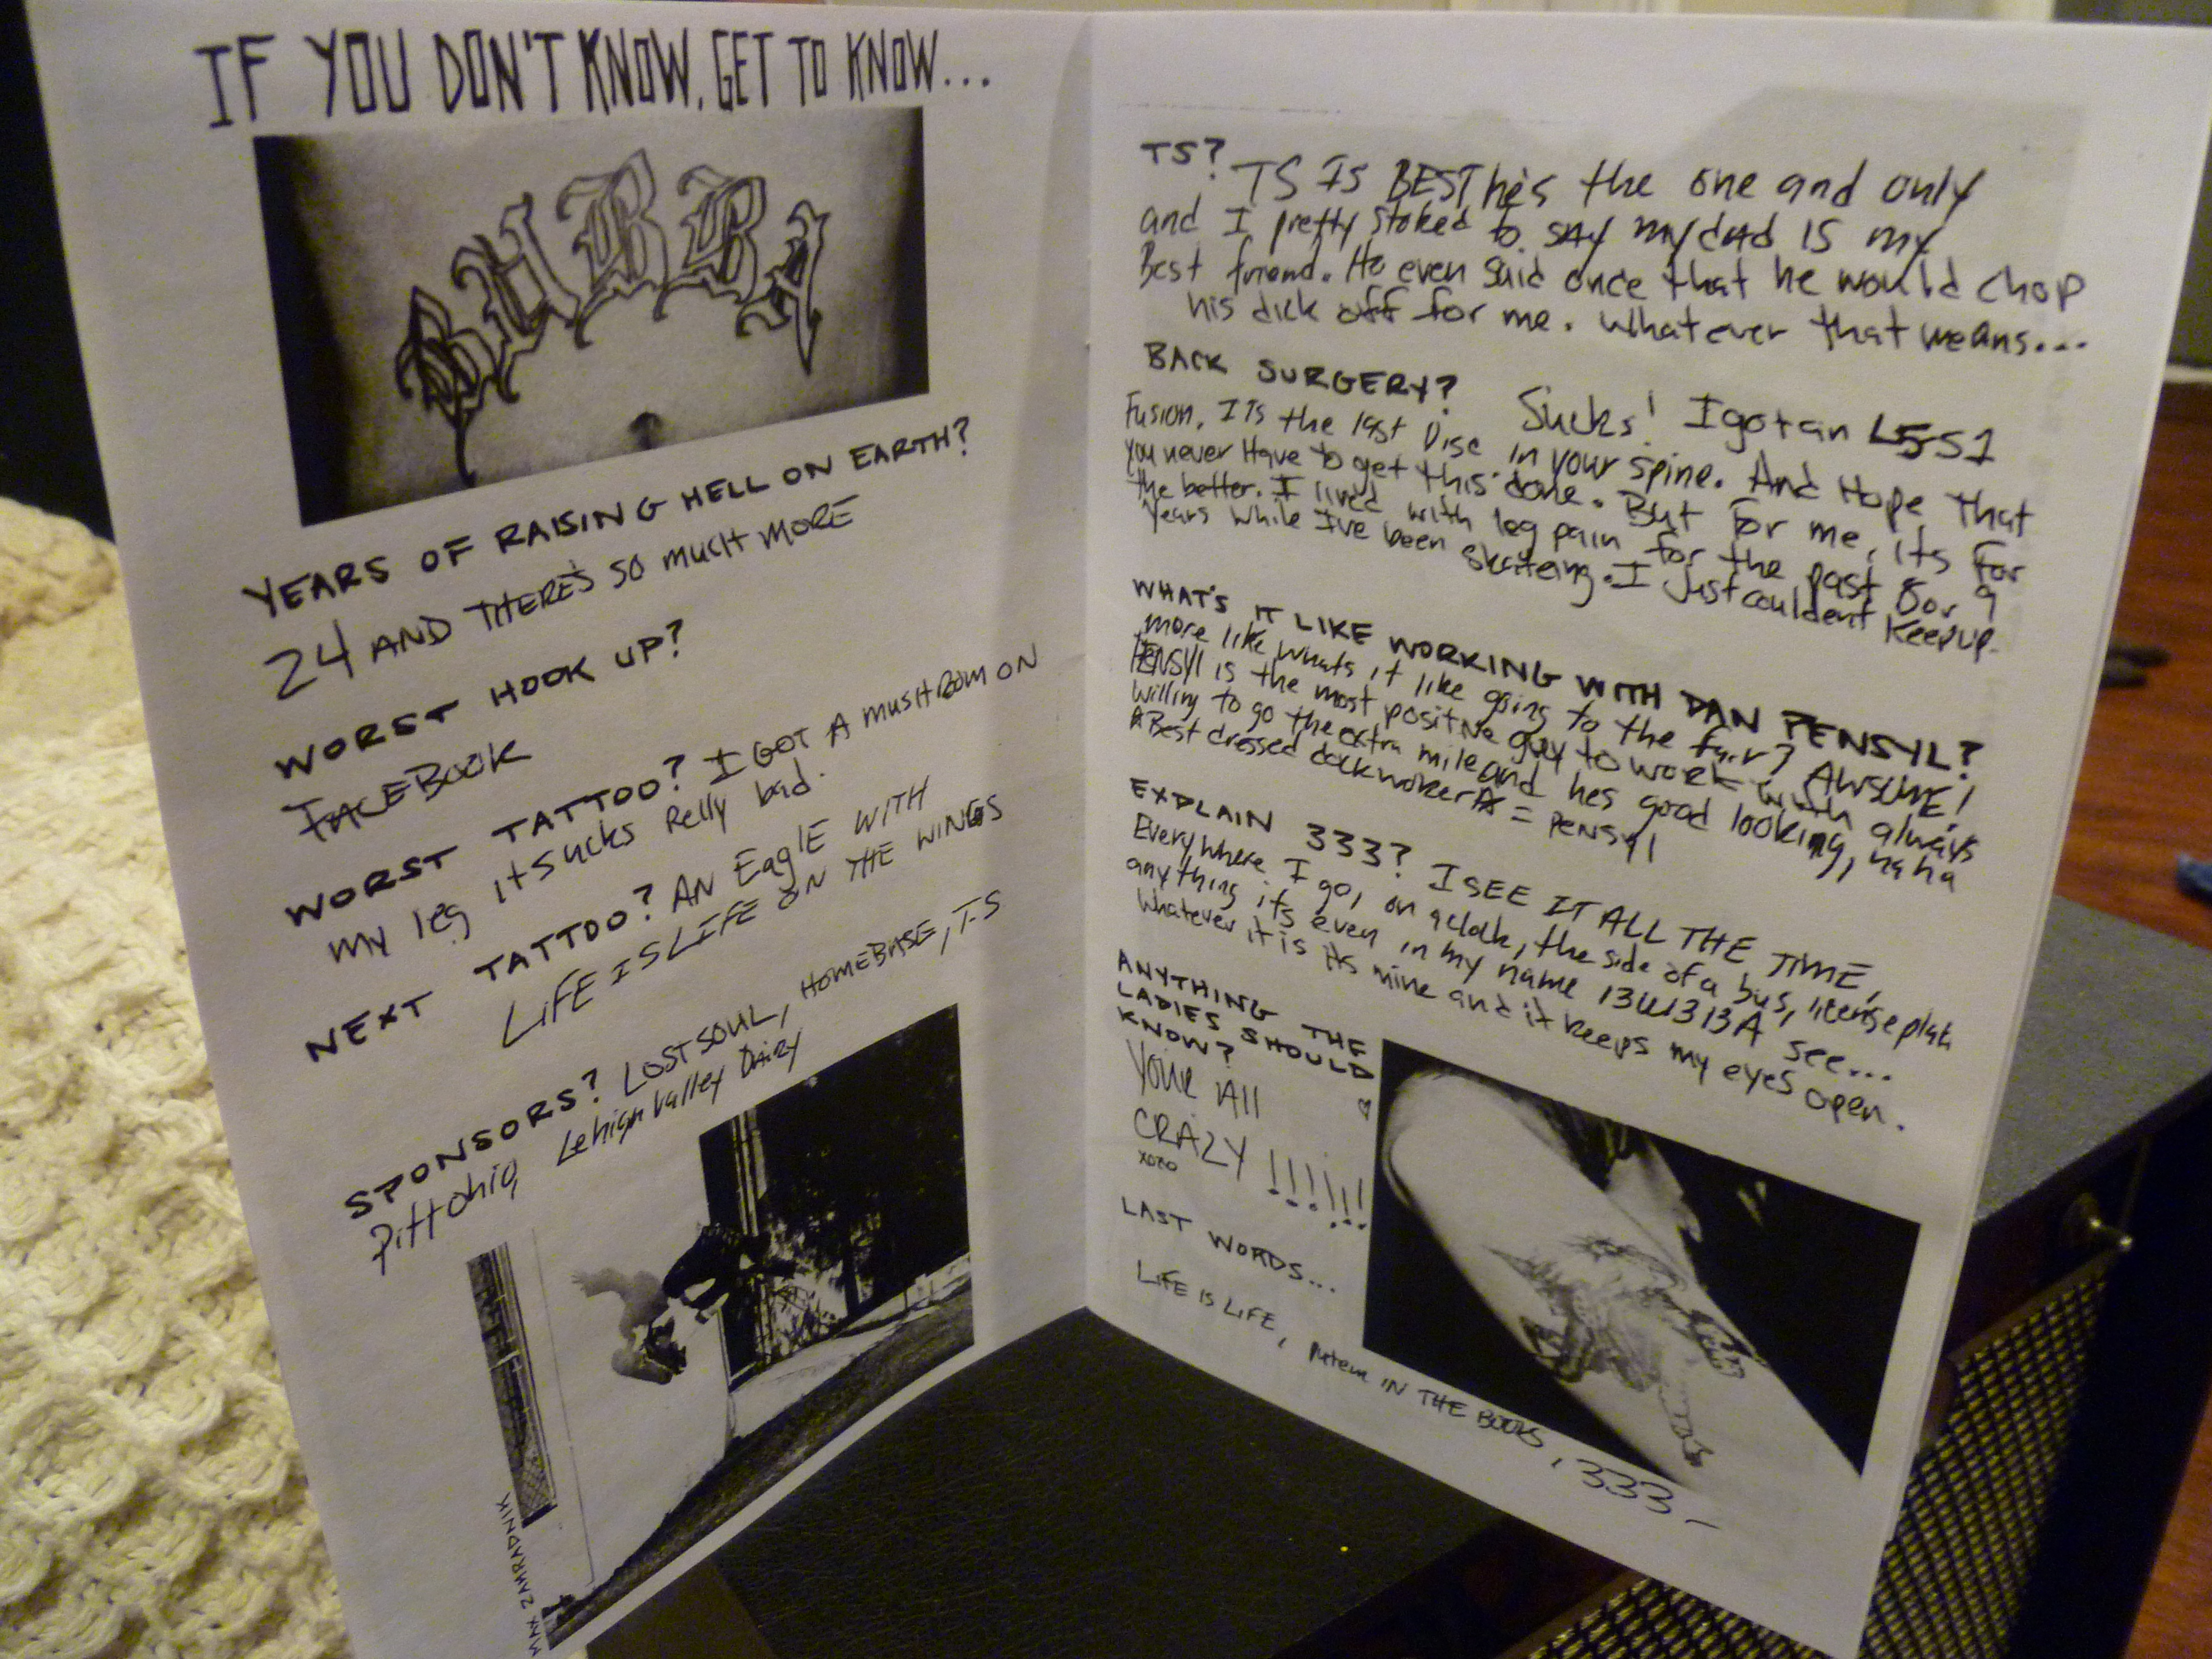 IF YOU DON'T KNOW, GET TO KNOW...
BUBBA
YEARS OF RAISING HELL ON EARTH?
24 AND THERE'S SO MUCH MORE
WORST HOOK UP?
FACEBOOK
WORST TATTOO? I GOT A MUSHROOM ON
my leg it sucks Relly bad.
NEXT TATTOO? AN EaglE WITH
LIFE IS LIFE ON THE WINGS
SPONSORS? LOST SOUL, HOMEBASE, T-S
Pitt Ohio, Lehigh Valley Dairy
MAX ZAHRADNIK
TS? TS IS BEST he's the one and only
and I pretty stoked to SAY my dad IS my
Best friend. He even said once that he would chop
his dick off for me. Whatever that means...
BACK SURGERY? Sucks! I got an L5 S1
Fusion. ITs the last Disc in your spine. And Hope That
you never Have to get this done. But for me, its For
the better. I lived with leg pain for the past 8 or 9
years while I've been skateing. I just couldent keep up.
WHAT'S IT LIKE WORKING WITH DAN PENSYL?
more like whats it like going to the fair? AWSOME!
PENSYl is the most positive guy to work with always
willing to go the extra mile and hes good looking, ha ha
☆Best dressed dockworker☆ = PENSYl
EXPLAIN 333? I SEE IT ALL THE TIME,
Everywhere I go, on a clock, the side of a bus, license plate
anything its even in my name 13U1313A see...
Whatever it is its mine and it keeps my eyes open.
ANYTHING THE
LADIES SHOULD
KNOW?
YOUR All
CRAZY !!!!!!
xoxo
LAST WORDS...
LIFE IS LIFE, putem IN THE BOOKS, 333-